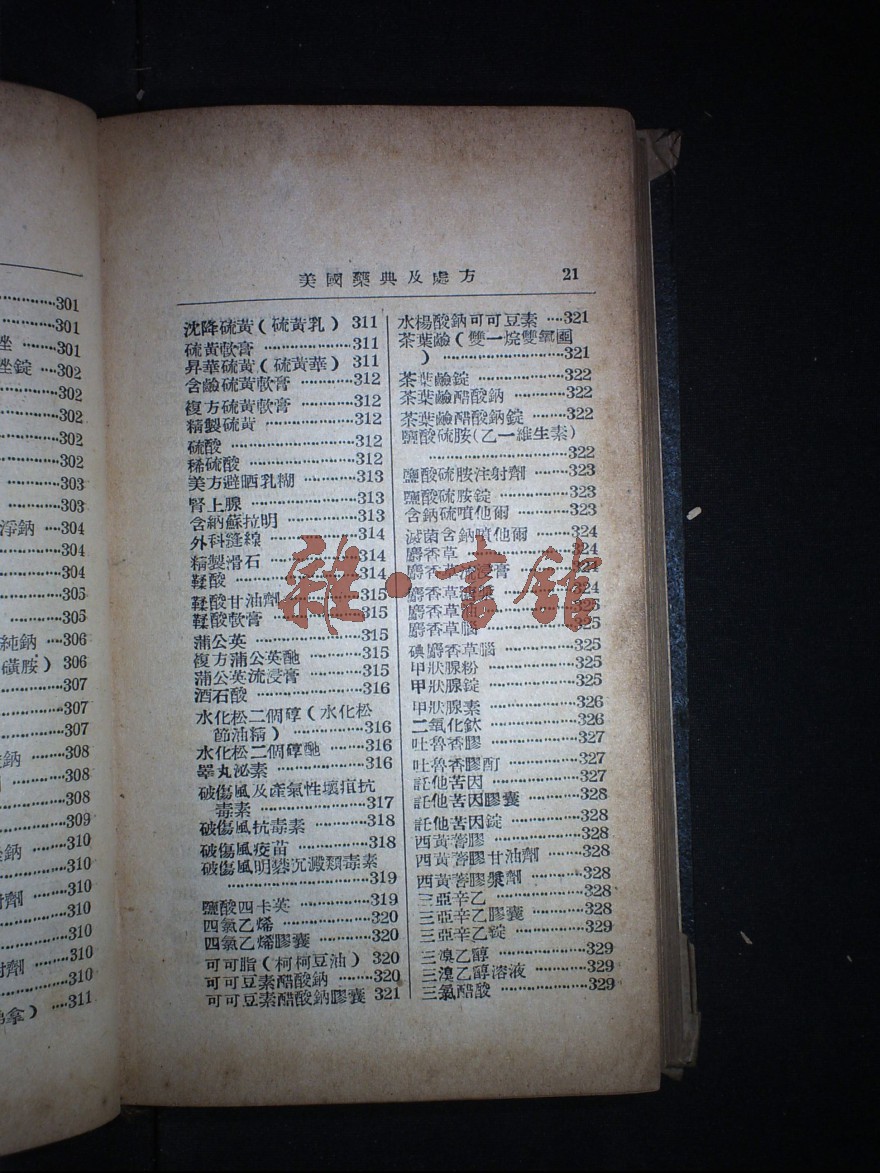 301
301
坐 301
坐錠 302
302
302
302
302
303
303
淨鈉 304
304
304
305
305
純鈉 306
磺胺) 306
307
307
307
鈉 308
308
308
309
鈉 310
310
劑 310
310
射劑 310
310
311
美國藥典及處方 21
沈降硫黃(硫黃乳) 311
硫黃軟膏 311
昇華硫黃(硫黃華) 311
含鹼硫黃軟膏 312
複方硫黃軟膏 312
精製硫黃 312
硫酸 312
稀硫酸 312
美方避晒乳糊 313
腎上腺 313
含納蘇拉明 313
外科縫線 314
精製滑石 314
鞣酸 314
鞣酸甘油劑 315
鞣酸軟膏 315
蒲公英 315
複方蒲公英酏 315
蒲公英流浸膏 315
酒石酸 316
水化松二個醇(水化松
節油精) 316
水化松二個醇酏 316
睪丸泌素 316
破傷風及產氣性壞疽抗
毒素 317
破傷風抗毒素 318
破傷風疫苗 318
破傷風明礬沉澱類毒素
319
鹽酸四卡英 319
四氯乙烯 320
四氯乙烯膠囊 320
可可脂(柯柯豆油) 320
可可豆素醋酸鈉 320
可可豆素醋酸鈉膠囊 321
水楊酸鈉可可豆素 321
茶葉鹼(雙一烷雙氧圜
) 321
茶葉鹼錠 322
茶葉鹼醋酸鈉 322
茶葉鹼醋酸鈉錠 322
鹽酸硫胺(乙一維生素)
322
鹽酸硫胺注射劑 323
鹽酸硫胺錠 323
含鈉硫噴他爾 323
滅菌含鈉噴他爾 324
麝香草 324
麝香草流浸膏 324
麝香草 324
麝香草油 325
麝香草腦 325
碘麝香草腦 325
甲狀腺粉 325
甲狀腺錠 325
甲狀腺素 326
二氧化鈦 326
吐魯香膠 327
吐魯香膠酊 327
託他苦因 327
託他苦因膠囊 328
託他苦因錠 328
西黃蓍膠 328
西黃蓍膠甘油劑 328
西黃蓍膠漿劑 328
三亞辛乙 328
三亞辛乙膠囊 328
三亞辛乙錠 328
三溴乙醇 329
三溴乙醇溶液 329
三氯醋酸 329
雜·书館